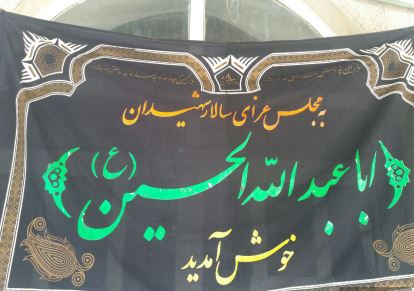 به مجلس عزای سالار شهیدان
ابا عبد الله الحسین (ع)
خوش آمدید